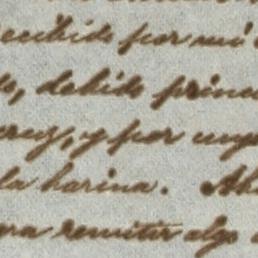 ecibido por mi
o, debido princ
cruz, y por cuyo
la harina. Ah
ra remitir algo